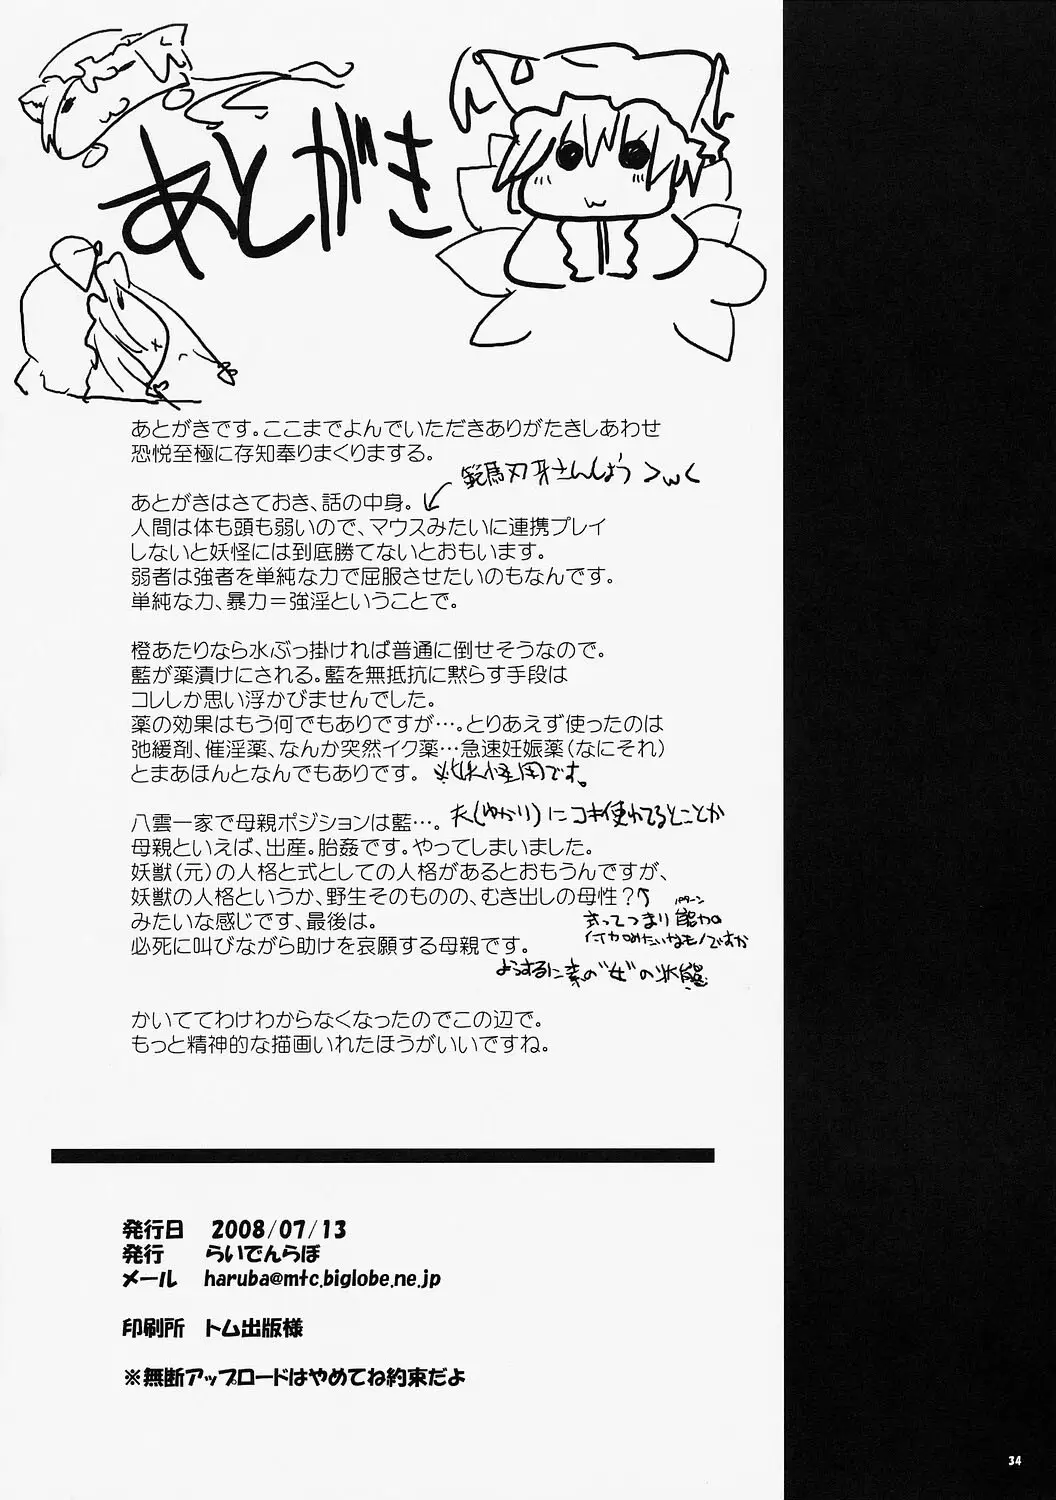 あとがき
あとがきです。ここまでよんでいただきありがたきしあわせ
恐悦至極に存知奉りまくりまする。
範馬刃牙さんしょう >w<
あとがきはさておき、話の中身。
人間は体も頭も弱いので、マウスみたいに連携プレイ
しないと妖怪には到底勝てないとおもいます。
弱者は強者を単純な力で屈服させたいのもなんです。
単純な力、暴力＝強淫ということで。
橙あたりなら水ぶっ掛ければ普通に倒せそうなので。
藍が薬漬けにされる。藍を無抵抗に黙らす手段は
コレしか思い浮かびませんでした。
薬の効果はもう何でもありですが…。とりあえず使ったのは
弛緩剤、催淫薬、なんか突然イク薬…急速妊娠薬（なにそれ）
とまあほんとなんでもありです。
八雲一家で母親ポジションは藍…。
夫(ゆかり)にコキ使われてるとことか
母親といえば、出産。胎姦です。やってしまいました。
妖獣（元）の人格と式としての人格があるとおもうんですが、
妖獣の人格というか、野生そのものの、むき出しの母性？
みたいな感じです、最後は。
パターン
式ってつまり能力の
付加みたいなモノですか
必死に叫びながら助けを哀願する母親です。
ようするに素の"女"の状態
かいててわけわからなくなったのでこの辺で。
もっと精神的な描画いれたほうがいいですね。
発行日 2008/07/13
発行 らいでんらぼ
メール haruba@mtc.biglobe.ne.jp
印刷所 トム出版様
※無断アップロードはやめてね約束だよ
34